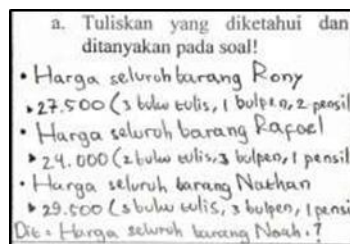 a. Tuliskan yang diketahui dan
ditanyakan pada soal!
• Harga seluruh barang Rony
▸ 27.500 (3 buku tulis, 1 bulpen, 2 pensil
• Harga seluruh barang Rafael
▸ 24.000 (2 buku tulis, 3 bulpen, 1 pensil
• Harga seluruh barang Nathan
▸ 29.500 (3 buku tulis, 3 bulpen, 1 pensi
Dit = Harga seluruh barang Noah.?